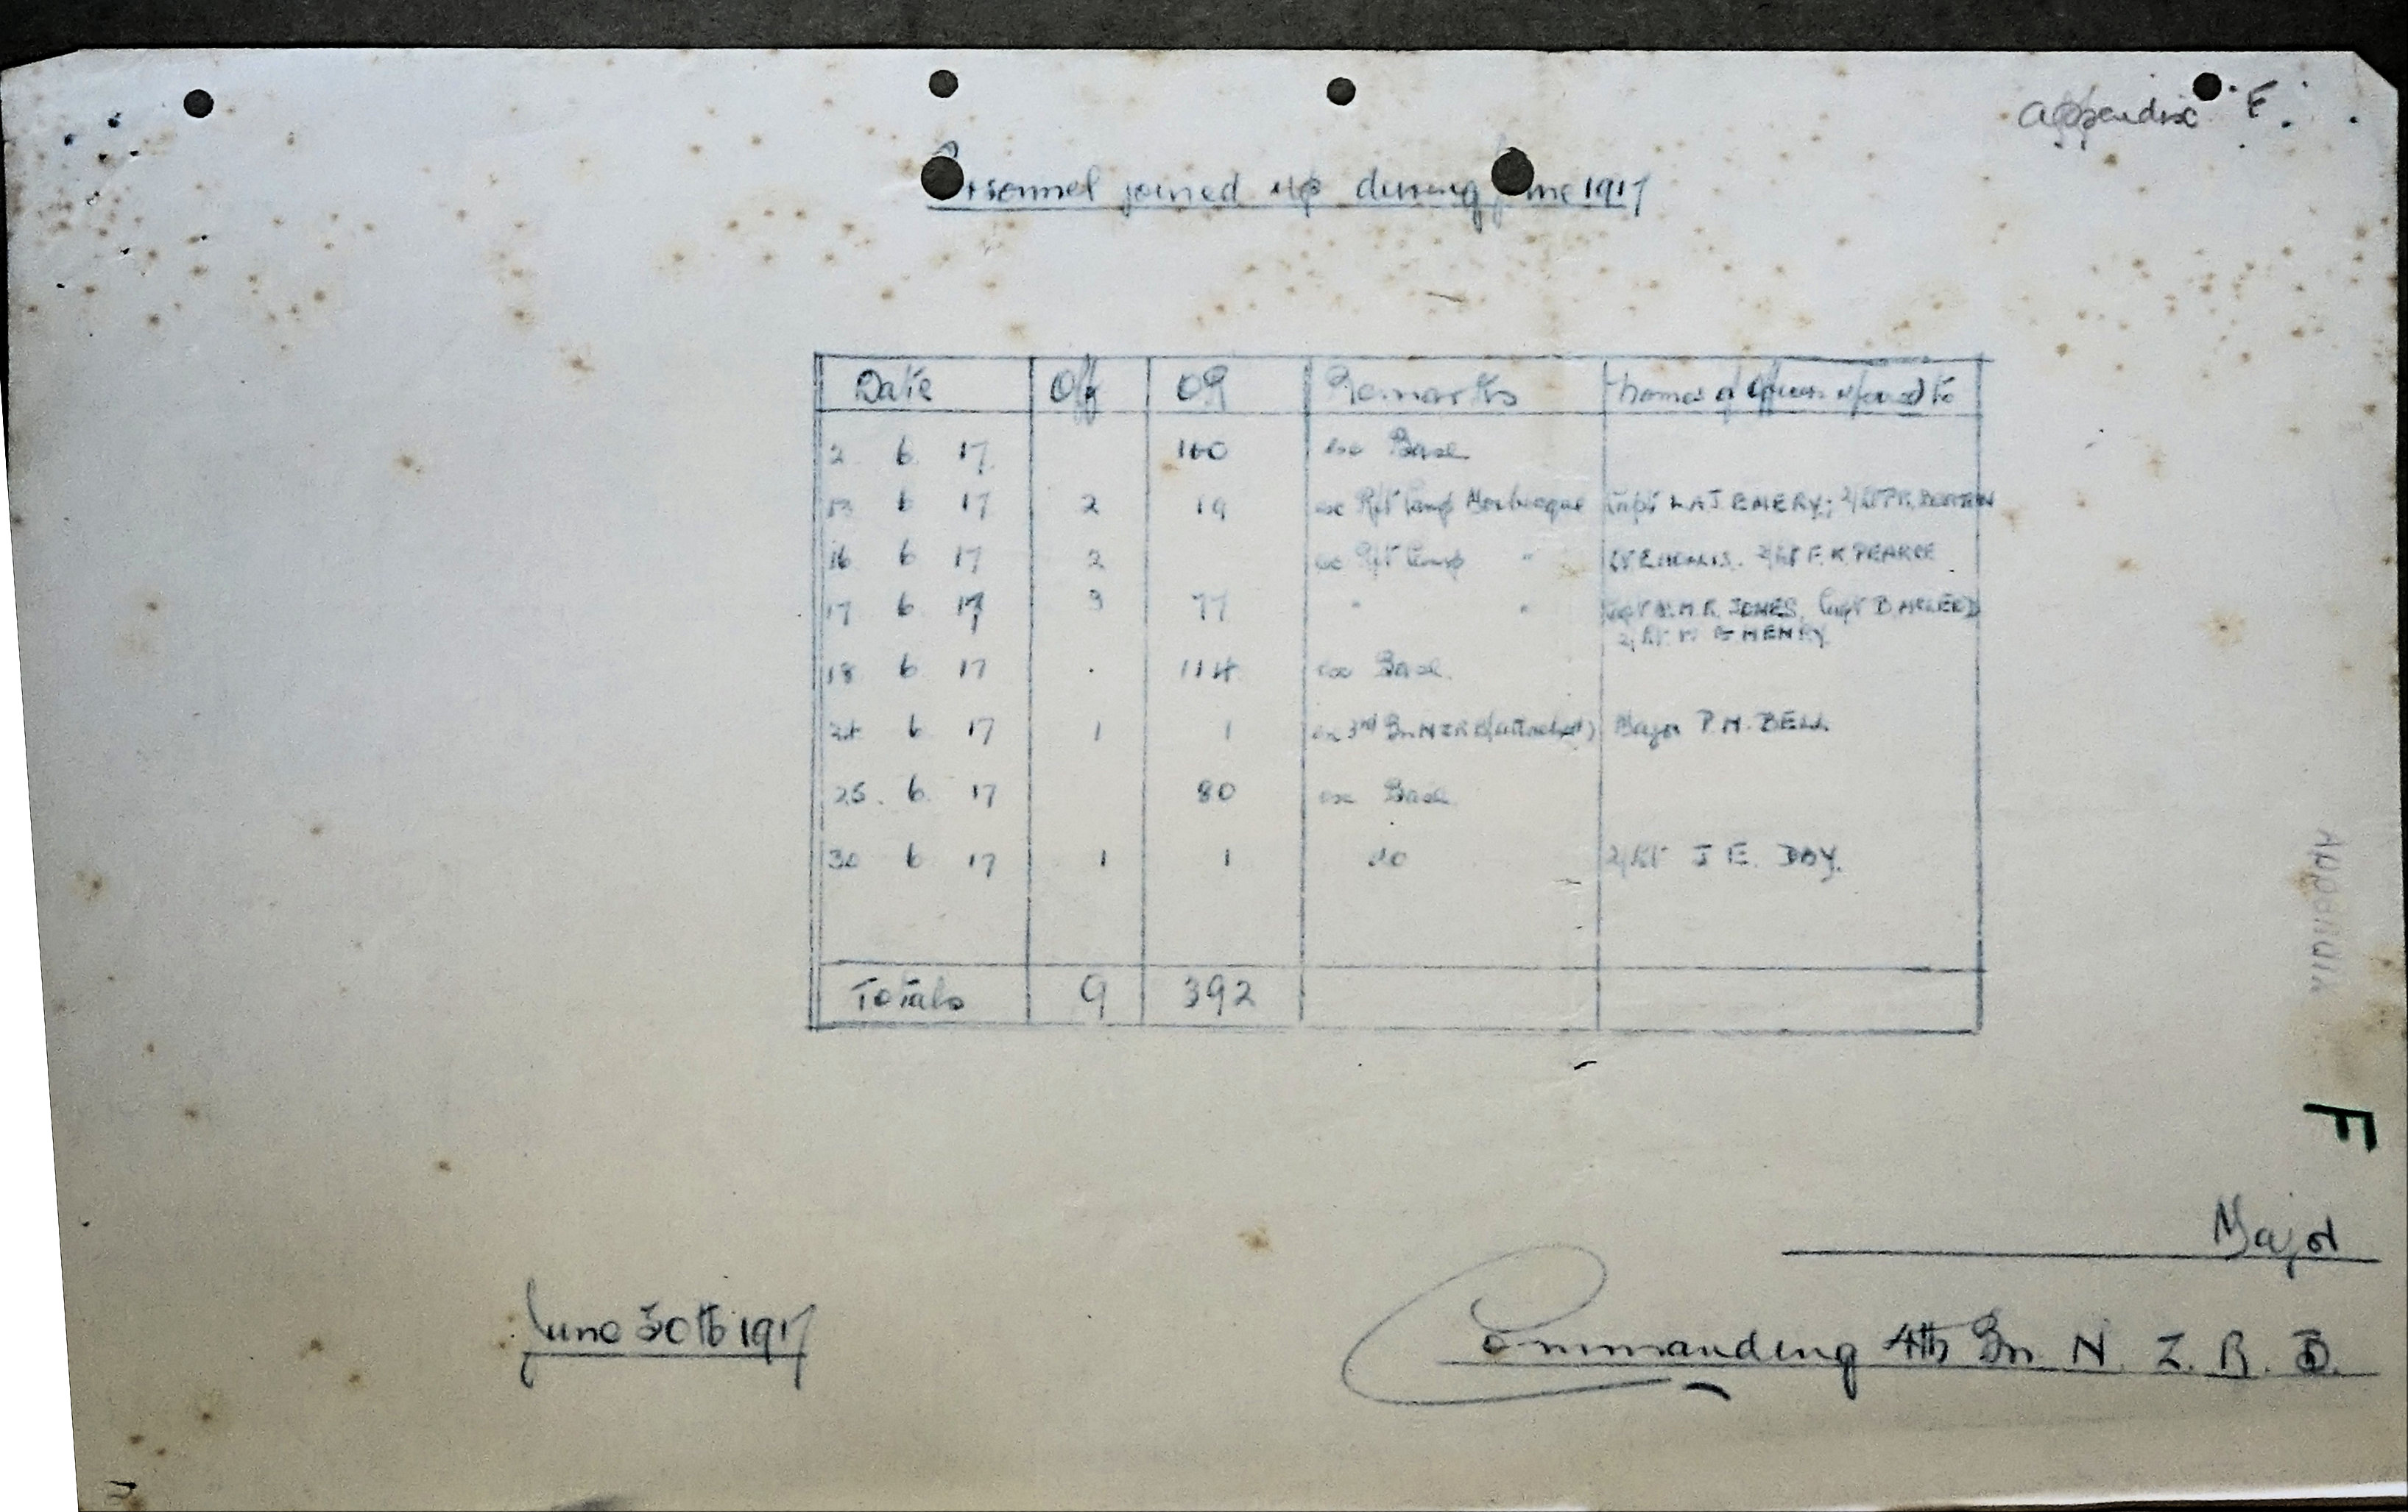 Appendix "F."
Personnel joined up during June 1917
Date Off OR Remarks Names of Officers referred to
2 6 17 100 ex Base
13 6 17 2 19 ex R/t Camp Morbecque Capt L A J EMERY; 2/Lt P.R.
16 6 17 2 ex R/t Camp " Lt 2/Lt F. K PEARCE
17 6 17 3 77 " " Capt N. M R. JONES, Capt D McLEOD
2/Lt. W G HENRY
18 6 17 . 114 ex Base
24 6 17 1 1 ex 3rd Bn N Z R B (attached) Major P. H. BELL
25. 6. 17 80 ex Base
30 6 17 1 1 do 2/Lt J E. DAY.
Totals 9 392
Appendix
F
Major
June 30th 1917
Commanding 4th Bn N. Z. R. B.